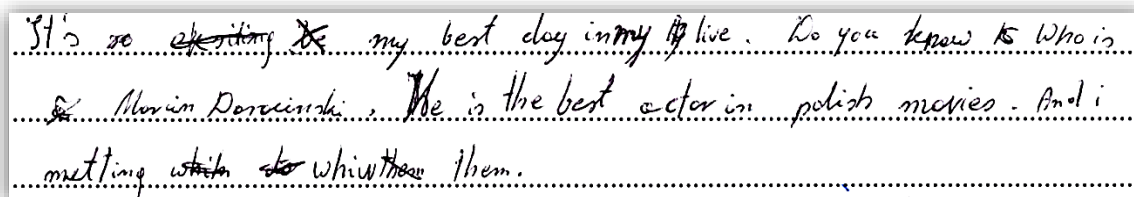 It's my best day in my live. Do you know who is
Marcin Dorocinski, He is the best actor in polish movies. And i
metting whiw them.